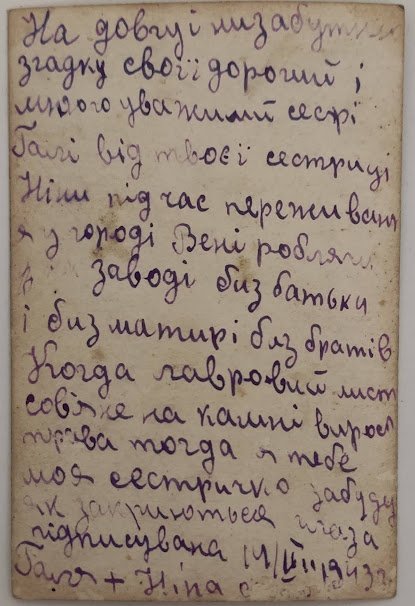 На довгуі низабутню
згадку своїї дорогий і
много уважимий сестрі
Галі від твоєї сестриці
Ніни під час переживан
я у городі Вені робляч
заводі биз батьки
і биз матирі биз братів
Когда лавровий лист
совяне на камні вирост
трава тогда я тебе
моя сестричко забуду
як закриються глаза
підписувана 1943г
Галя + Ніна